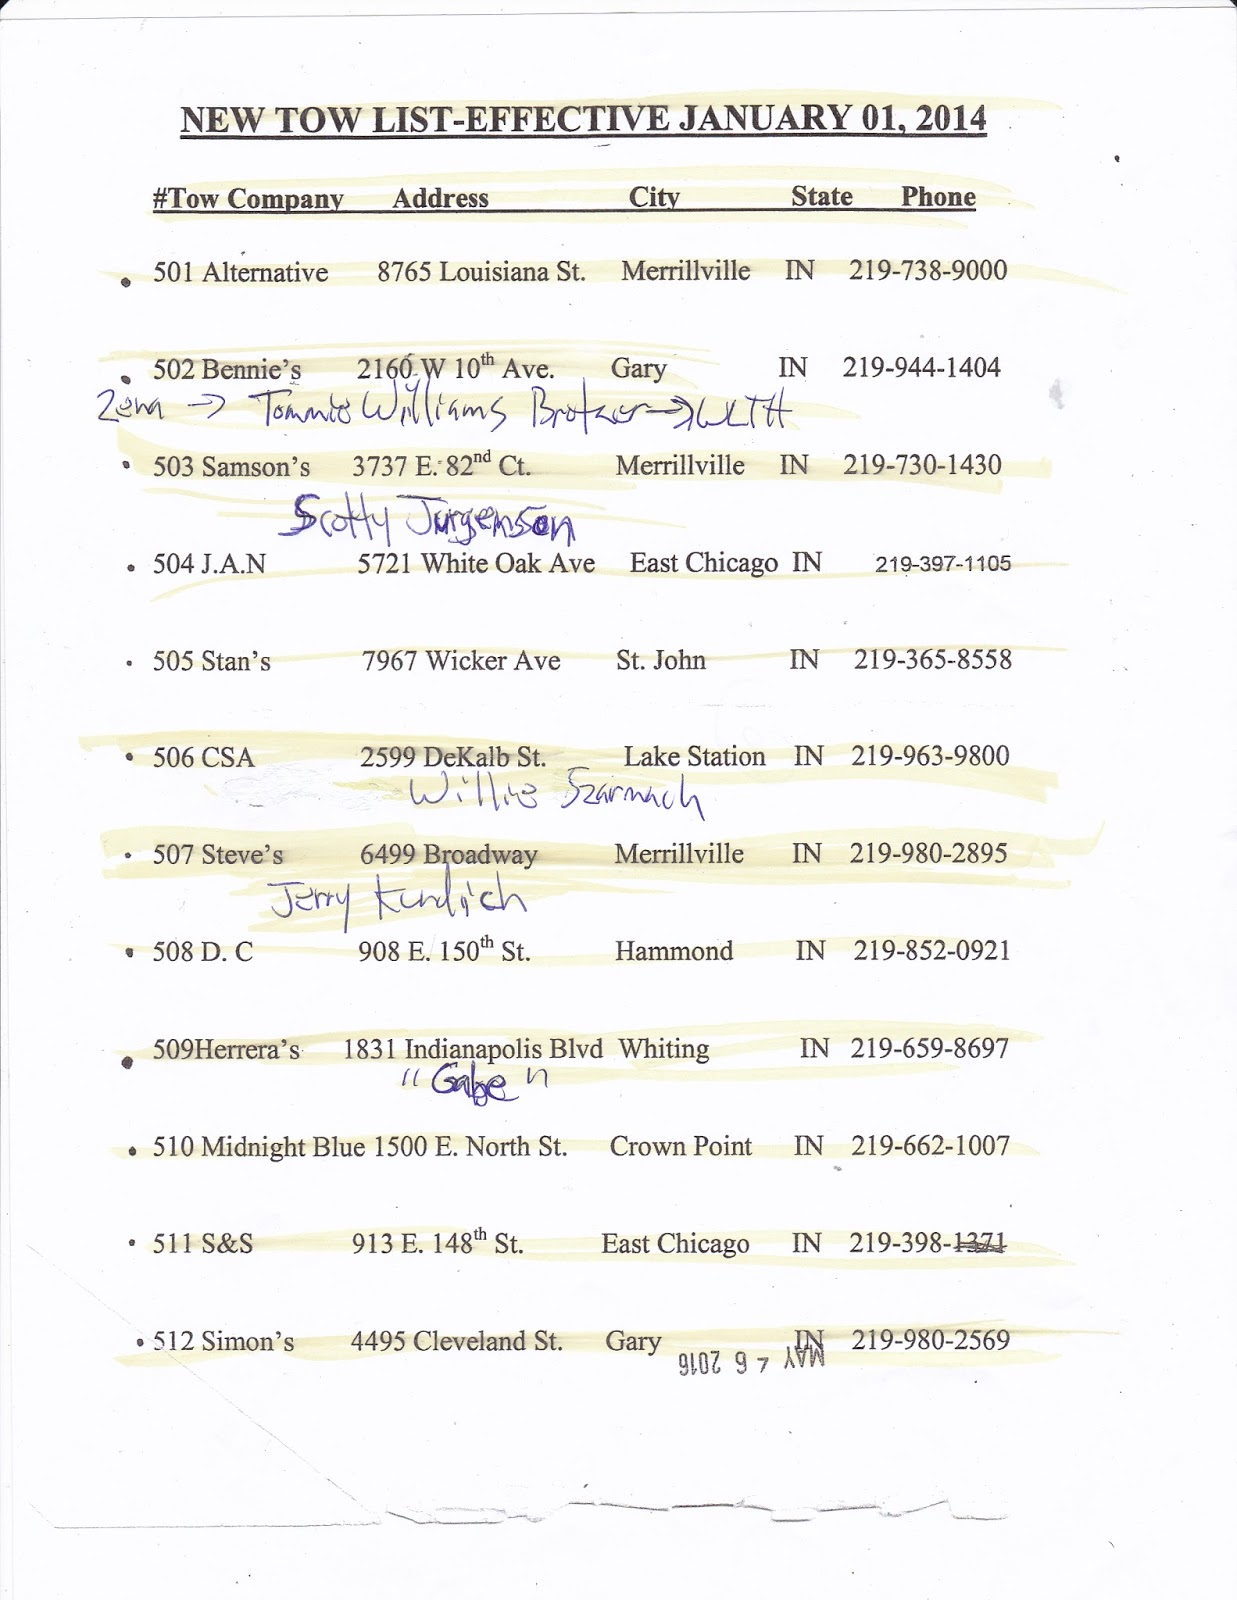 NEW TOW LIST-EFFECTIVE JANUARY 01, 2014
#Tow Company Address City State Phone
501 Alternative 8765 Louisiana St. Merrillville IN 219-738-9000
502 Bennie's 2160 W 10th Ave. Gary IN 219-944-1404
Zena → Tommie Williams Brother → WLTH
503 Samson's 3737 E. 82nd Ct. Merrillville IN 219-730-1430
Scotty Jurgenson
504 J.A.N 5721 White Oak Ave East Chicago IN 219-397-1105
505 Stan's 7967 Wicker Ave St. John IN 219-365-8558
506 CSA 2599 DeKalb St. Lake Station IN 219-963-9800
Willie Szarmach
507 Steve's 6499 Broadway Merrillville IN 219-980-2895
Jerry Kundich
508 D. C 908 E. 150th St. Hammond IN 219-852-0921
509Herrera's 1831 Indianapolis Blvd Whiting IN 219-659-8697
"Gabe"
510 Midnight Blue 1500 E. North St. Crown Point IN 219-662-1007
511 S&S 913 E. 148th St. East Chicago IN 219-398-1371
512 Simon's 4495 Cleveland St. Gary IN 219-980-2569
MAY 2016